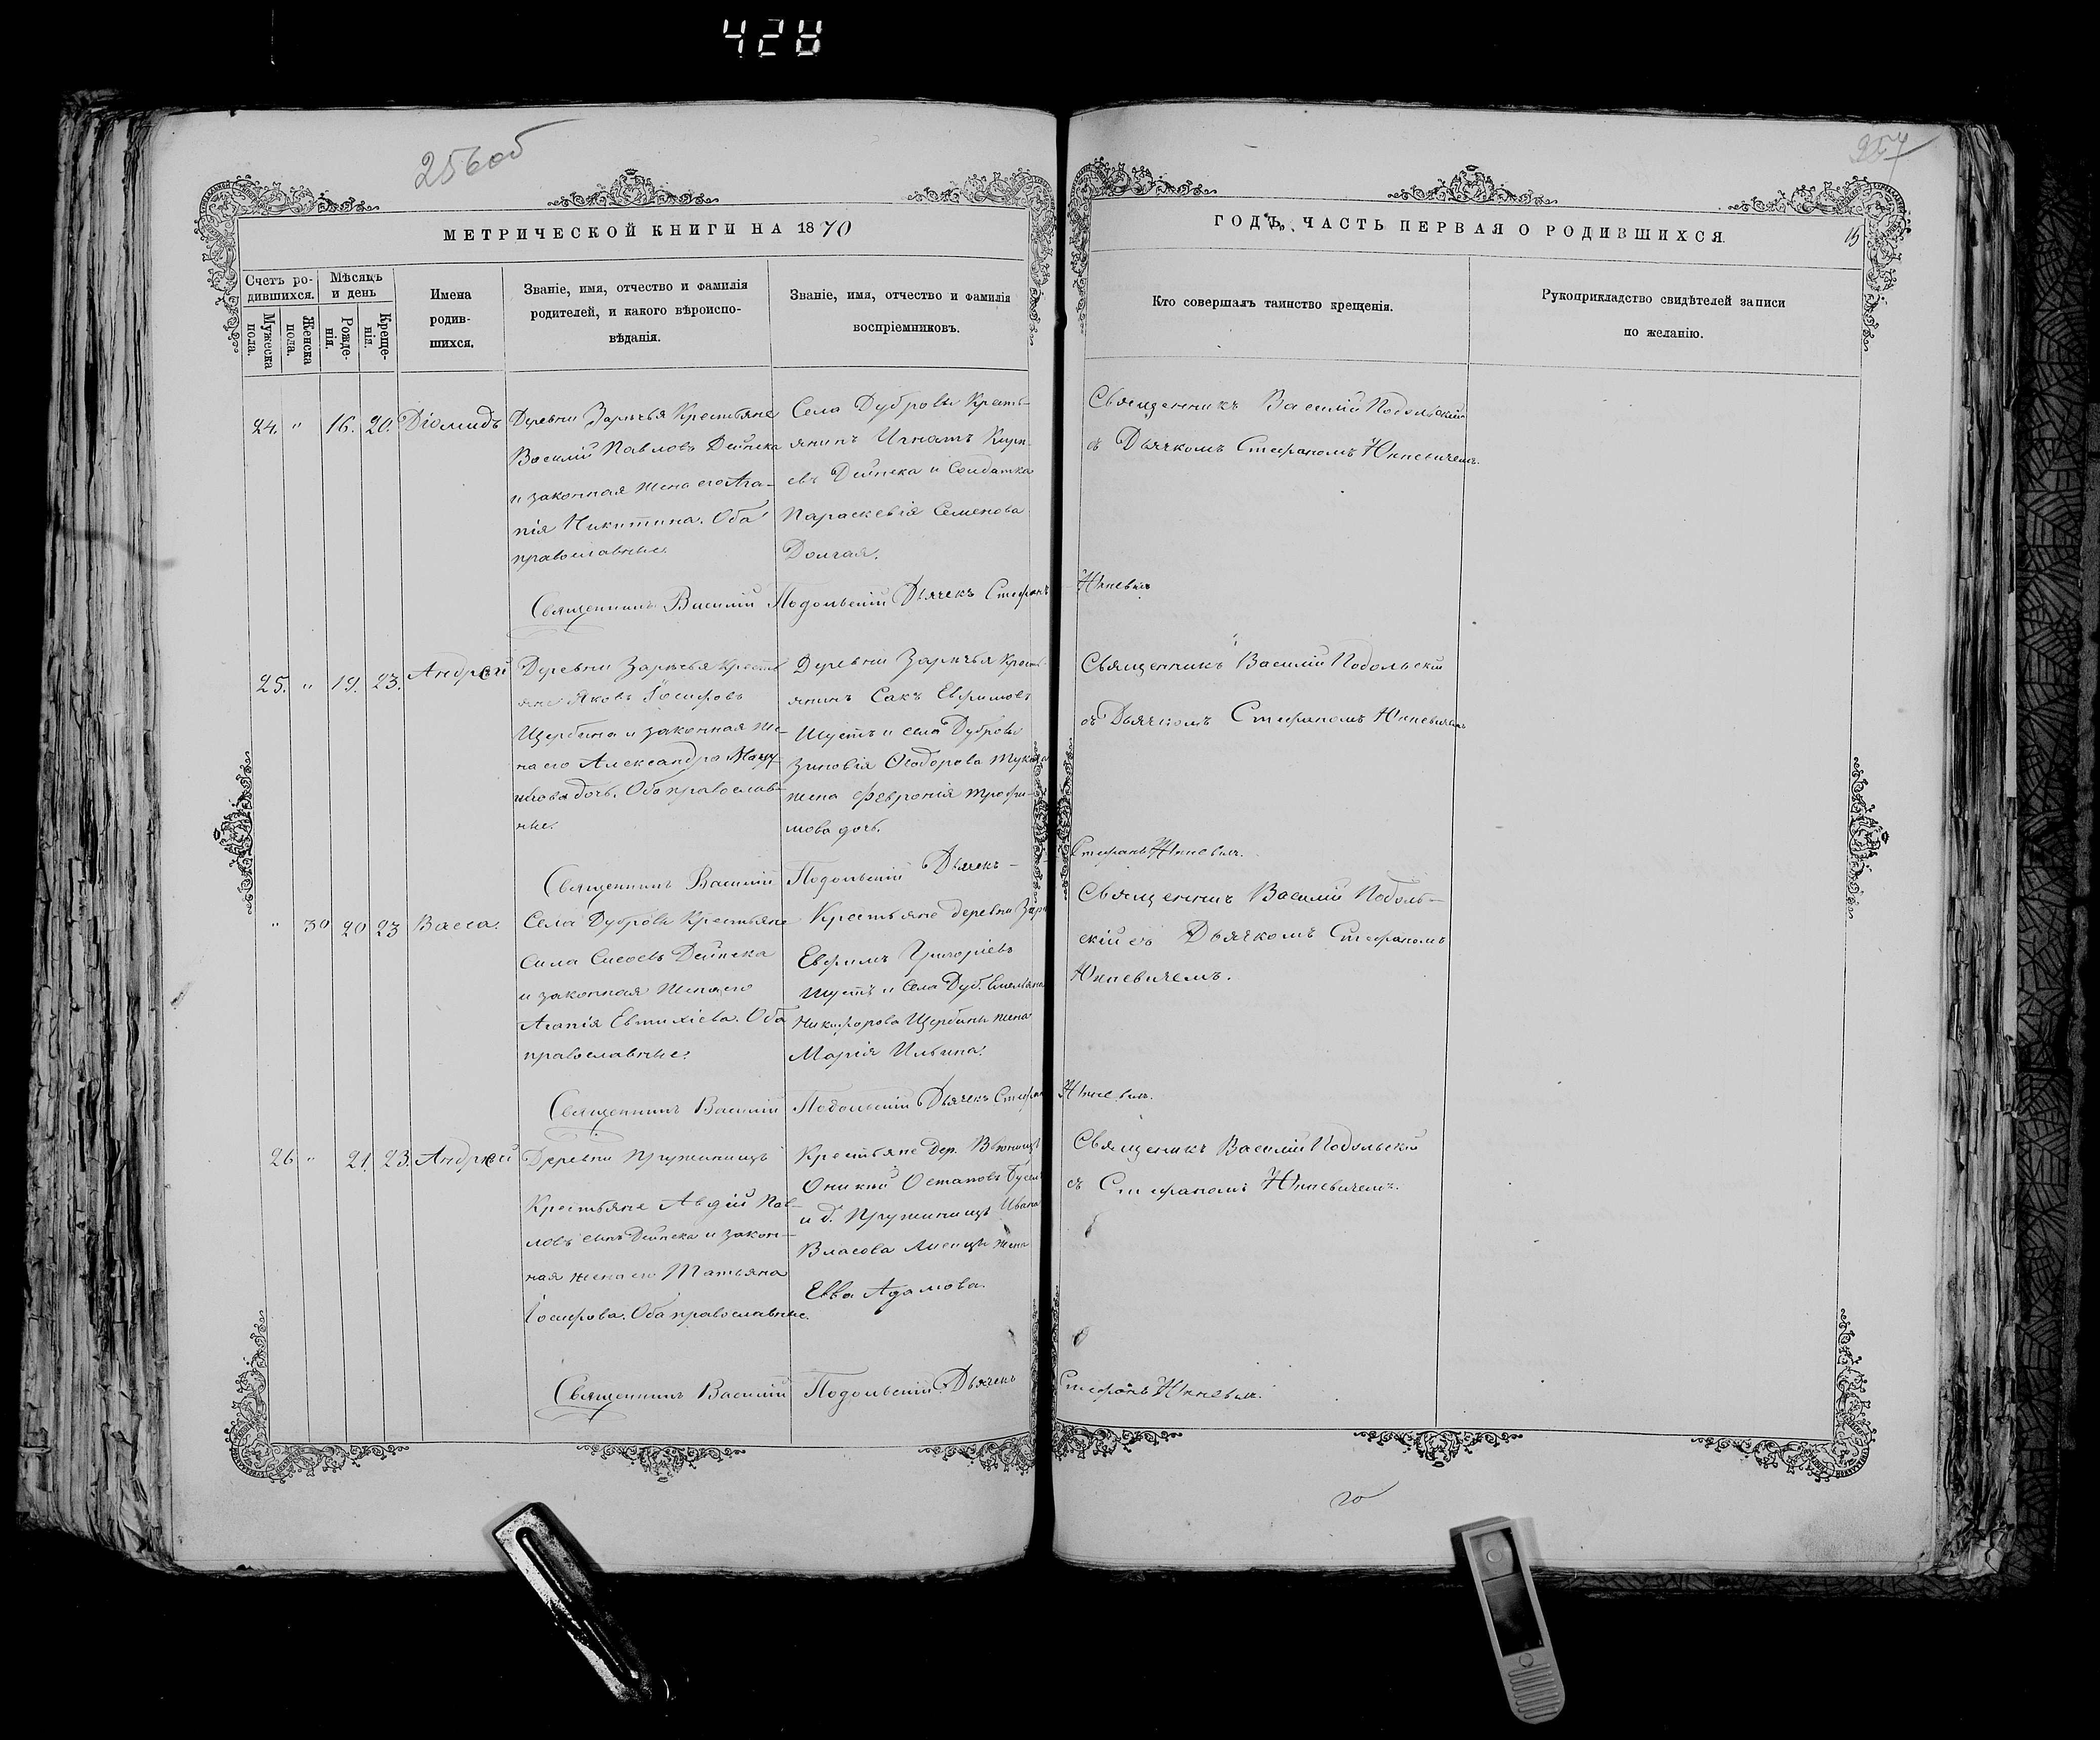 428
256об
257
МЕТРИЧЕСКОЙ КНИГИ НА 1870
ГОДЪ, ЧАСТЬ ПЕРВАЯ О РОДИВШИХСЯ.
15
Счетъ ро-
дившихся.
Мужеска
пола.
Женска
пола.
Мѣсяцъ
и день
Рожде-
нія.
Креще-
нія.
Имена
родив-
шихся.
Званіе, имя, отчество и фамилія
родителей, и какого вѣроиспо-
вѣданія.
Званіе, имя, отчество и фамилія
воспріемниковъ.
Кто совершалъ таинство крещенія.
Рукоприкладство свидѣтелей записи
по желанію.
24. " 16. 20. Діомидъ
Деревни Зарѣчья Крестьяне
Василій Павловъ Дейнека
и законная жена его Ага-
пія Никитина. Оба
православные.
Села Дубровы Кресть-
янинъ Игнатъ
Дейнека и Солдатка
Параскевія Семенова
Долгая.
Священникъ Василій Подольскій
съ Дьячкомъ Стефаномъ Юхневичемъ.
Священникъ Василій Подольскій Дьячекъ Стефанъ Юхневичъ
25. " 19. 23. Андрей
Деревни Зарѣчья Кресть-
яне Яковъ Іосифовъ
Щербина и законная же-
на его Александра
дочь. Оба православ-
ные.
Деревни Зарѣчья Кресть-
янинъ Сакъ Евфимовъ
Шустъ и села Дубровы
Зиновія Ѳеодорова
жена Февронія Трофи-
мова дочь.
Священникъ Василій Подольскій
съ Дьячкомъ Стефаномъ Юхневичемъ
Священникъ Василій Подольскій Дьячекъ – Стефанъ Юхневичъ.
" 30 20 23 Васса.
Села Дубровы Крестьяне
Сила Сисоевъ Дейнека
и законная жена его
Агапія Евтихіева. Оба
православные.
Крестьяне деревни
Евфимъ Григоріевъ
Шустъ и Села Дуб. Емельяна
Никифорова Щербины жена
Марія Ильина.
Священникъ Василій Подоль-
скій съ Дьячкомъ Стефаномъ
Юхневичемъ.
Священникъ Василій Подольскій Дьячекъ Стефанъ Юхневичъ.
26 " 21. 23. Андрей
Деревни Пружинищъ
Крестьяне Авдій Пав-
ловъ сынъ Дейнека и закон-
ная жена его Татьяна
Іосифова. Оба православные.
Крестьяне Дер.
Остаповъ
и д. Пружинищъ Ивана
Власова жена
Евва Адамова.
Священикъ Василій Подольскій
съ Стефаномъ Юхневичемъ.
Священникъ Василій Подольскій Дьячекъ Стефанъ Юхневичъ.